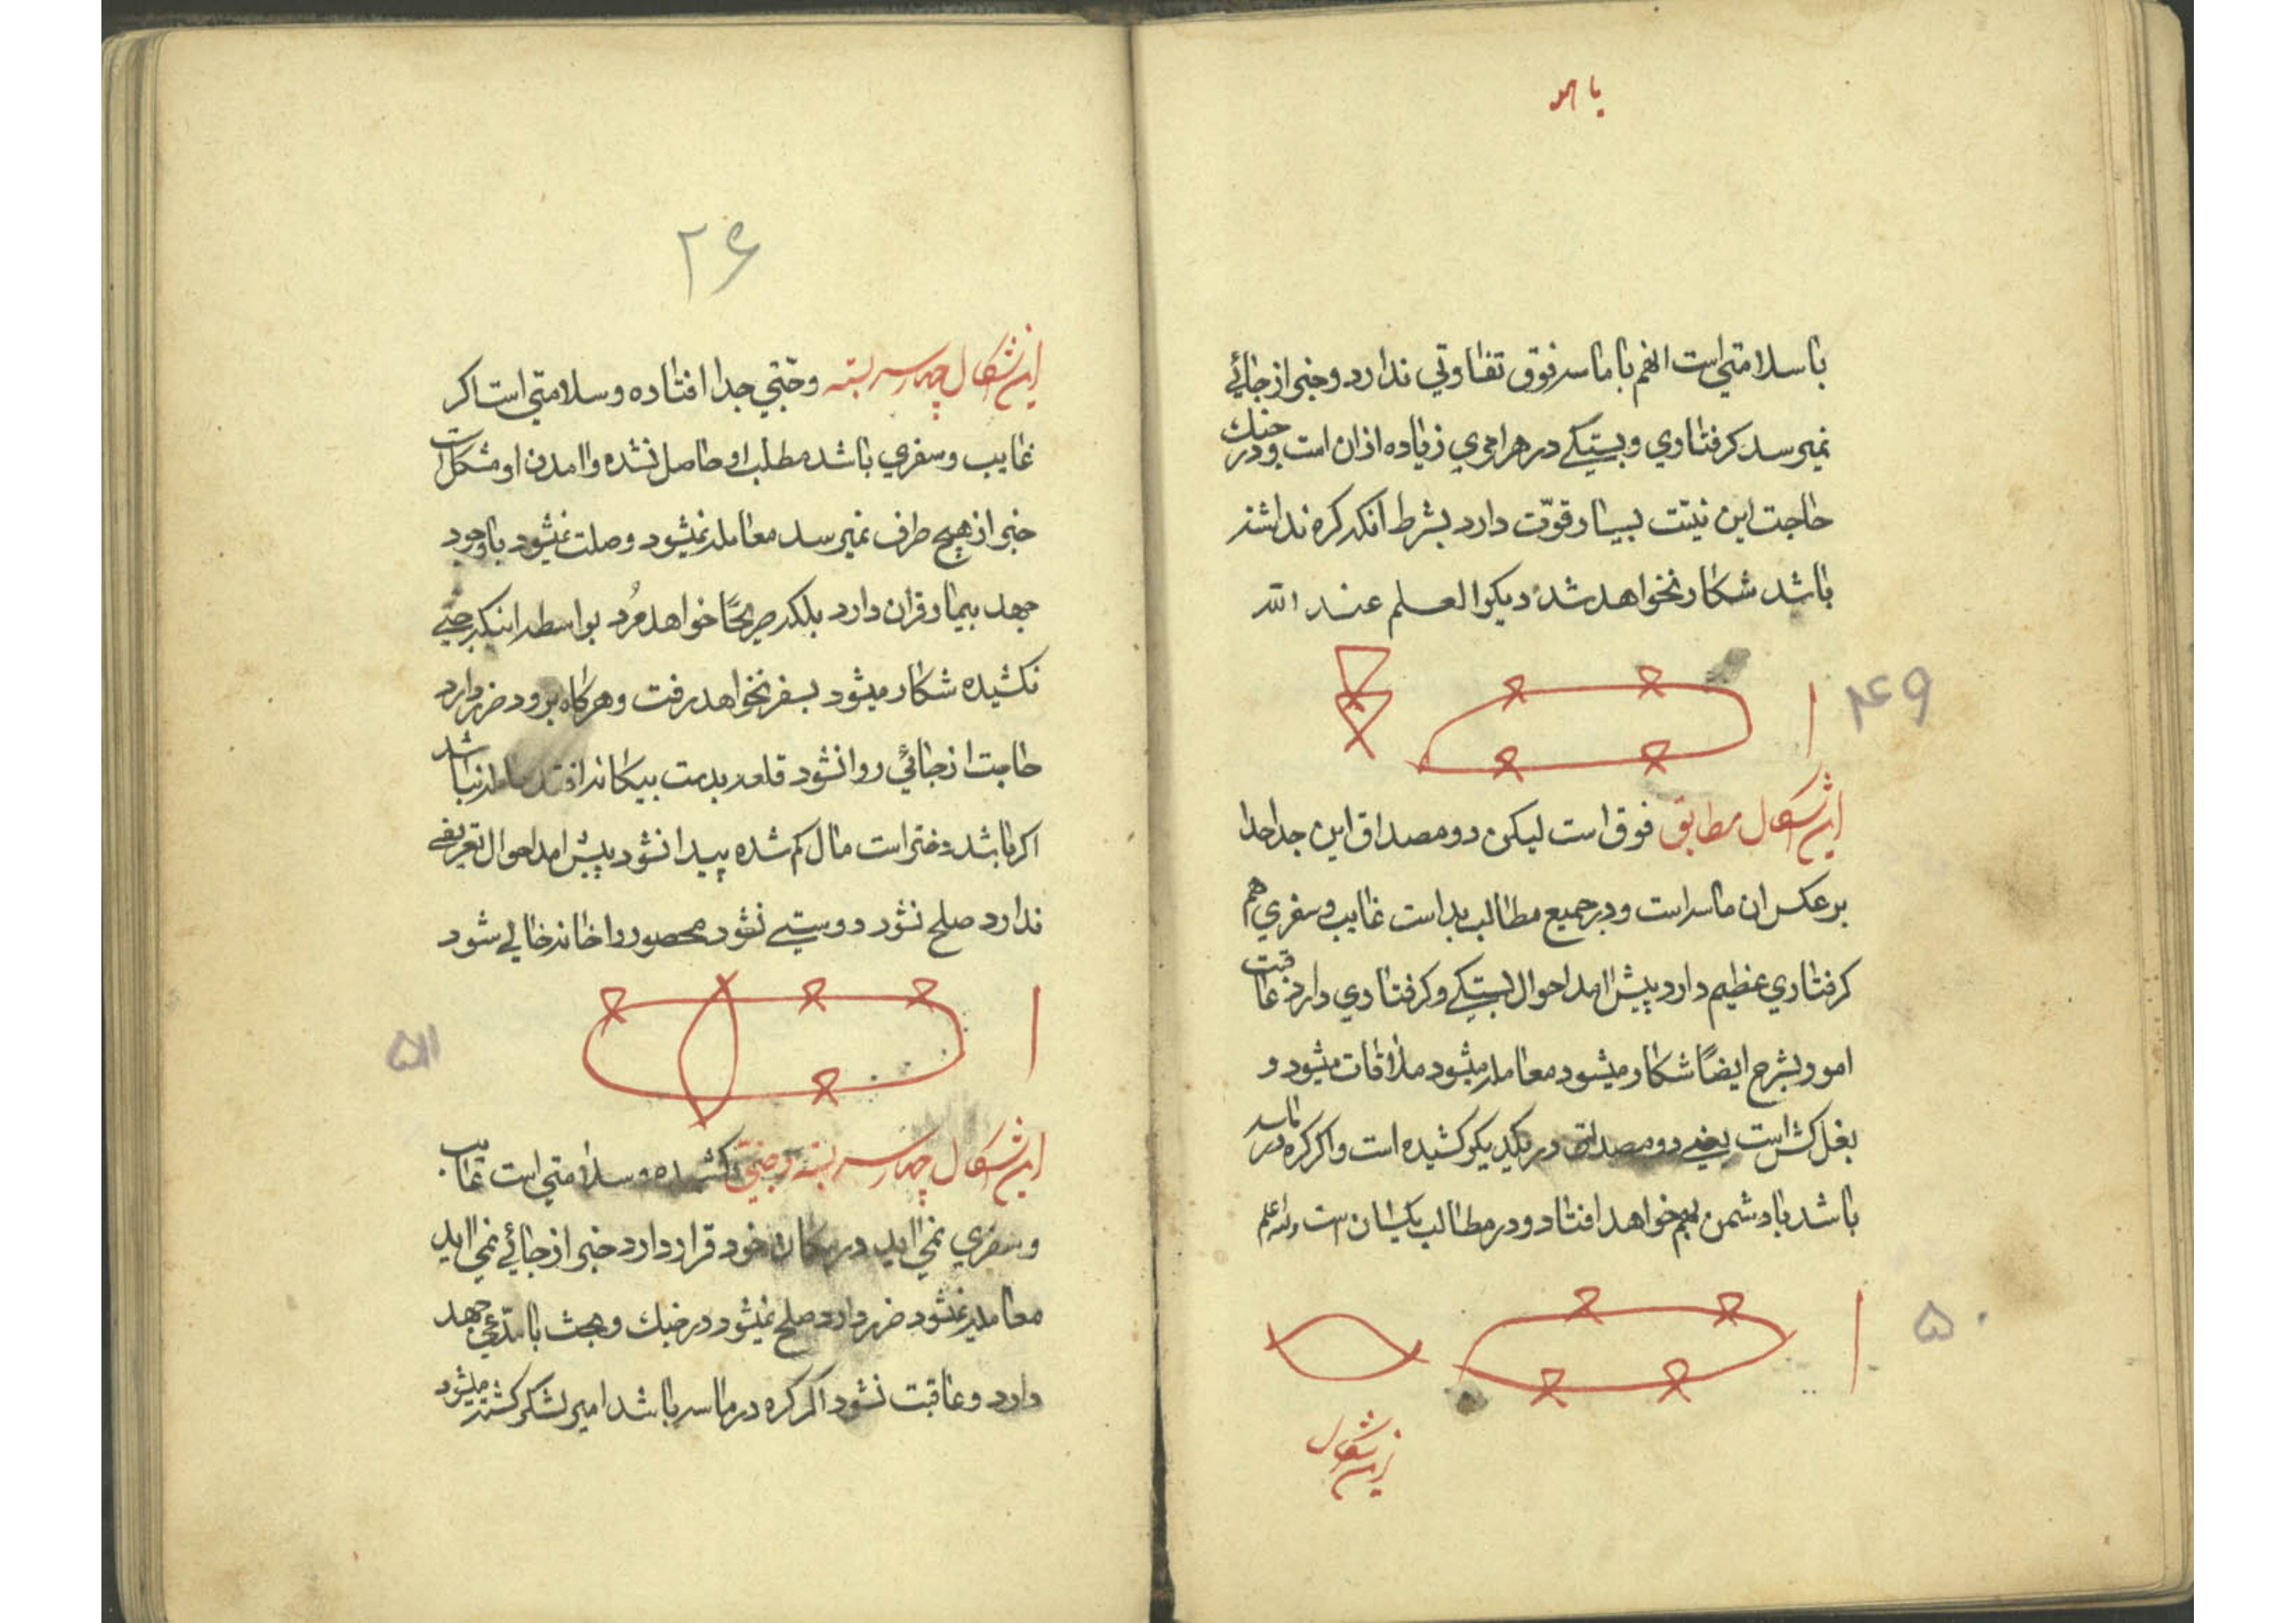 با سلامتی است انهم با ماسر فوق تفاوتی ندارد و خبر از جائی
نمیرسد کرفتاری و بستیکے در هر امری زیاده ازان است و در جنك
حاجت این نیت بسیار قوّت دارد بشرط آنکه کره نداشته
باشد شکار نخواهد شد دیکر العلم عند الله
۴۹
این شکال مطابق فوق است لیکن دو مصداق این جدا جدا
بر عکس ان ماسر است و در جمیع مطالب بد است غایب و سفری هم
کرفتاری عظیم دارد پیش امد احوال بستیکے و کرفتاری دارد عاقبت
امور بشرح ایضاً شکار میشود معامله میشود ملاقات میشود و
بغل کش است یعنے دو مصداق در یکدیکر کشیده است و اکر کره در ماسر
باشد با دشمن بهم خواهد افتاد و در مطالب یکسان است والله اعلم
۵۰
این شکال
۲۶
این شکال چهار سر بسته و جنبی جدا افتاده و سلامتی است اکر
غایب و سفری باشد مطلب او حاصل نشده و امدن او مشکل است
خبر از هیچ طرف نمیرسد معامله نمیشود وصلت نمیشود باوجود
جهد بیمار قران دارد بلکه صریحًا خواهد مُرد بواسطه اینکه جنبے
نکشیده شکار میشود بسفر نخواهد رفت و هرکاه برود ضرر دارد
حاجت از جائی روا نشود قلعه بدست بیکانه افتد حامله نباشد
اکر باشد دختر است مال کم شده پیدا نشود پیش امد احوال تعریفے
ندارد صلح نشود دوستیے نشود محصور را خانه خالی شود
۵۱
این شکال چهار سر بسته و جنبی کشیده و سلامتی است غایب
و سفری نمی اید در مکان خود قرار دارد خبر از جائے نمی اید
معامله نمیشود ضرر دارد صلح نمیشود در جنك و بحث با مدّعی جهد
دارد و عاقبت نشود اکر کره در ماسر باشد امیر لشکر کشته میشود